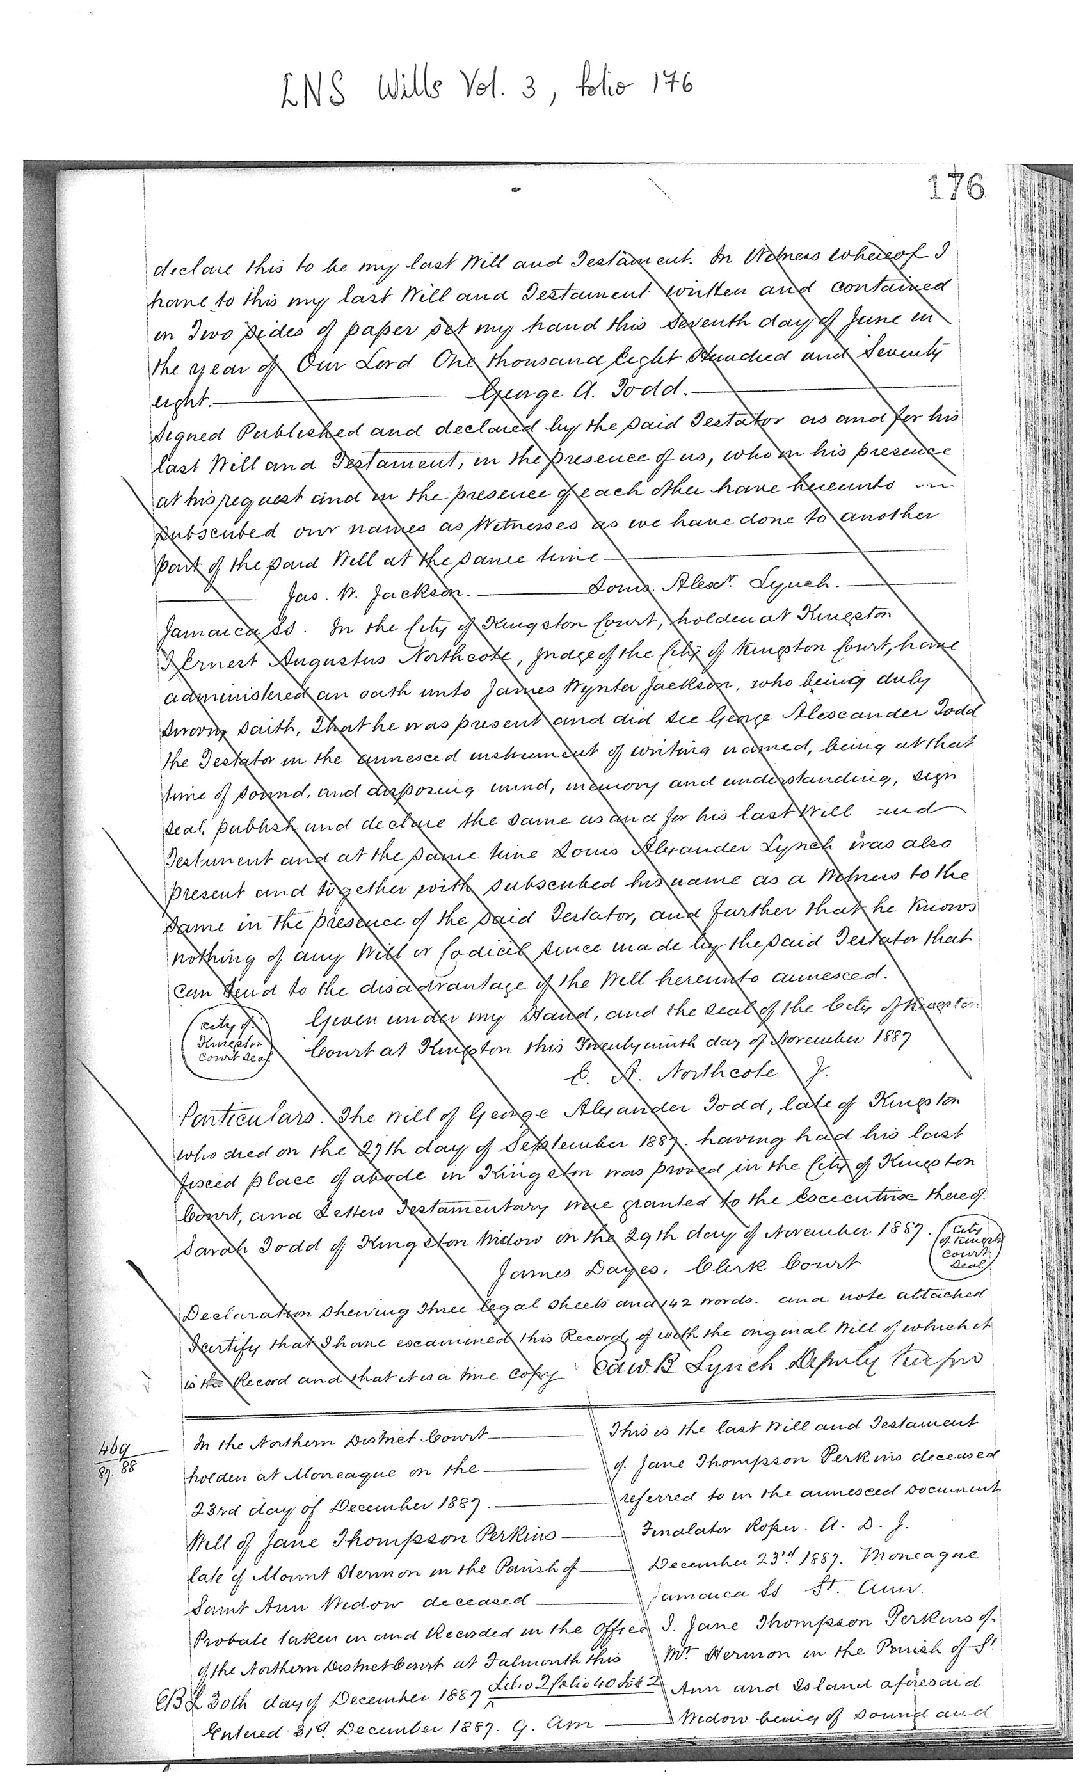 LNS Wills Vol. 3, folio 176
176
declare this to be my last Will and Testament. In Witness whereof I
have to this my last Will and Testament written and contained
in Two sides of paper set my hand this Seventh day of June in
the year of Our Lord One thousand Eight Hundred and Seventy
eight. George A. Todd.
Signed Published and declared by the said Testator as and for his
last Will and Testament, in the presence of us, who in his presence
at his request and in the presence of each other have hereunto
subscribed our names as Witnesses as we have done to another
part of the said Will at the same time
Jas. W. Jackson. Louis Alexr. Lynch.
Jamaica Ss. In the City of Kingston Court, holden at Kingston
I Ernest Augustus Northcote, Judge of the City of Kingston Court, have
administered an oath unto James Wynter Jackson, who being duly
sworn saith, That he was present and did see George Alexander Todd
the Testator in the annexed instrument of writing named, being at that
time of sound, and disposing mind, memory and understanding, sign
seal, publish and declare the same as and for his last Will and
Testament and at the same time Louis Alexander Lynch was also
present and together with subscribed his name as a Witness to the
same in the presence of the said Testator, and further that he knows
nothing of any Will or Codicil since made by the said Testator that
can tend to the disadvantage of the Will hereunto annexed.
City of Kingston Court Seal
Given under my Hand, and the seal of the City of Kingston
Court at Kingston this Twenty ninth day of November 1887
E. A. Northcote J.
Particulars. The Will of George Alexander Todd, late of Kingston
who died on the 27th day of September 1887. having had his last
fixed place of abode in Kingston was proved in the City of Kingston
Court, and Letters Testamentary were granted to the Executrix thereof
Sarah Todd of Kingston Widow on the 29th day of November 1887.
City of Kingston Court Seal
James Dayes. Clerk Court
Declaration shewing Three legal sheets and 142 words. and note attached
I certify that I have examined this Record of with the original Will of which it
is the Record and that it is a true copy Edw B Lynch Deputy Keeper
469
87/88
In the Northern District Court
holden at Moneague on the
23rd day of December 1887.
Will of Jane Thompson Perkins
late of Mount Hermon in the Parish of
Saint Ann Widow deceased
Probate taken in and Recorded in the Office
of the Northern District Court at Falmouth this
EBL 30th day of December 1887 Libro 2 folio 40
Entered 31st December 1887. 9. Am
This is the last Will and Testament
of Jane Thompson Perkins deceased
referred to in the annexed document
Findlater Roper. A. D. J.
December 23rd 1887. Moneague
Jamaica Ss St. Ann.
I. Jane Thompson Perkins of
Mt. Hermon in the Parish of St
Ann and Island aforesaid
Widow being of sound and